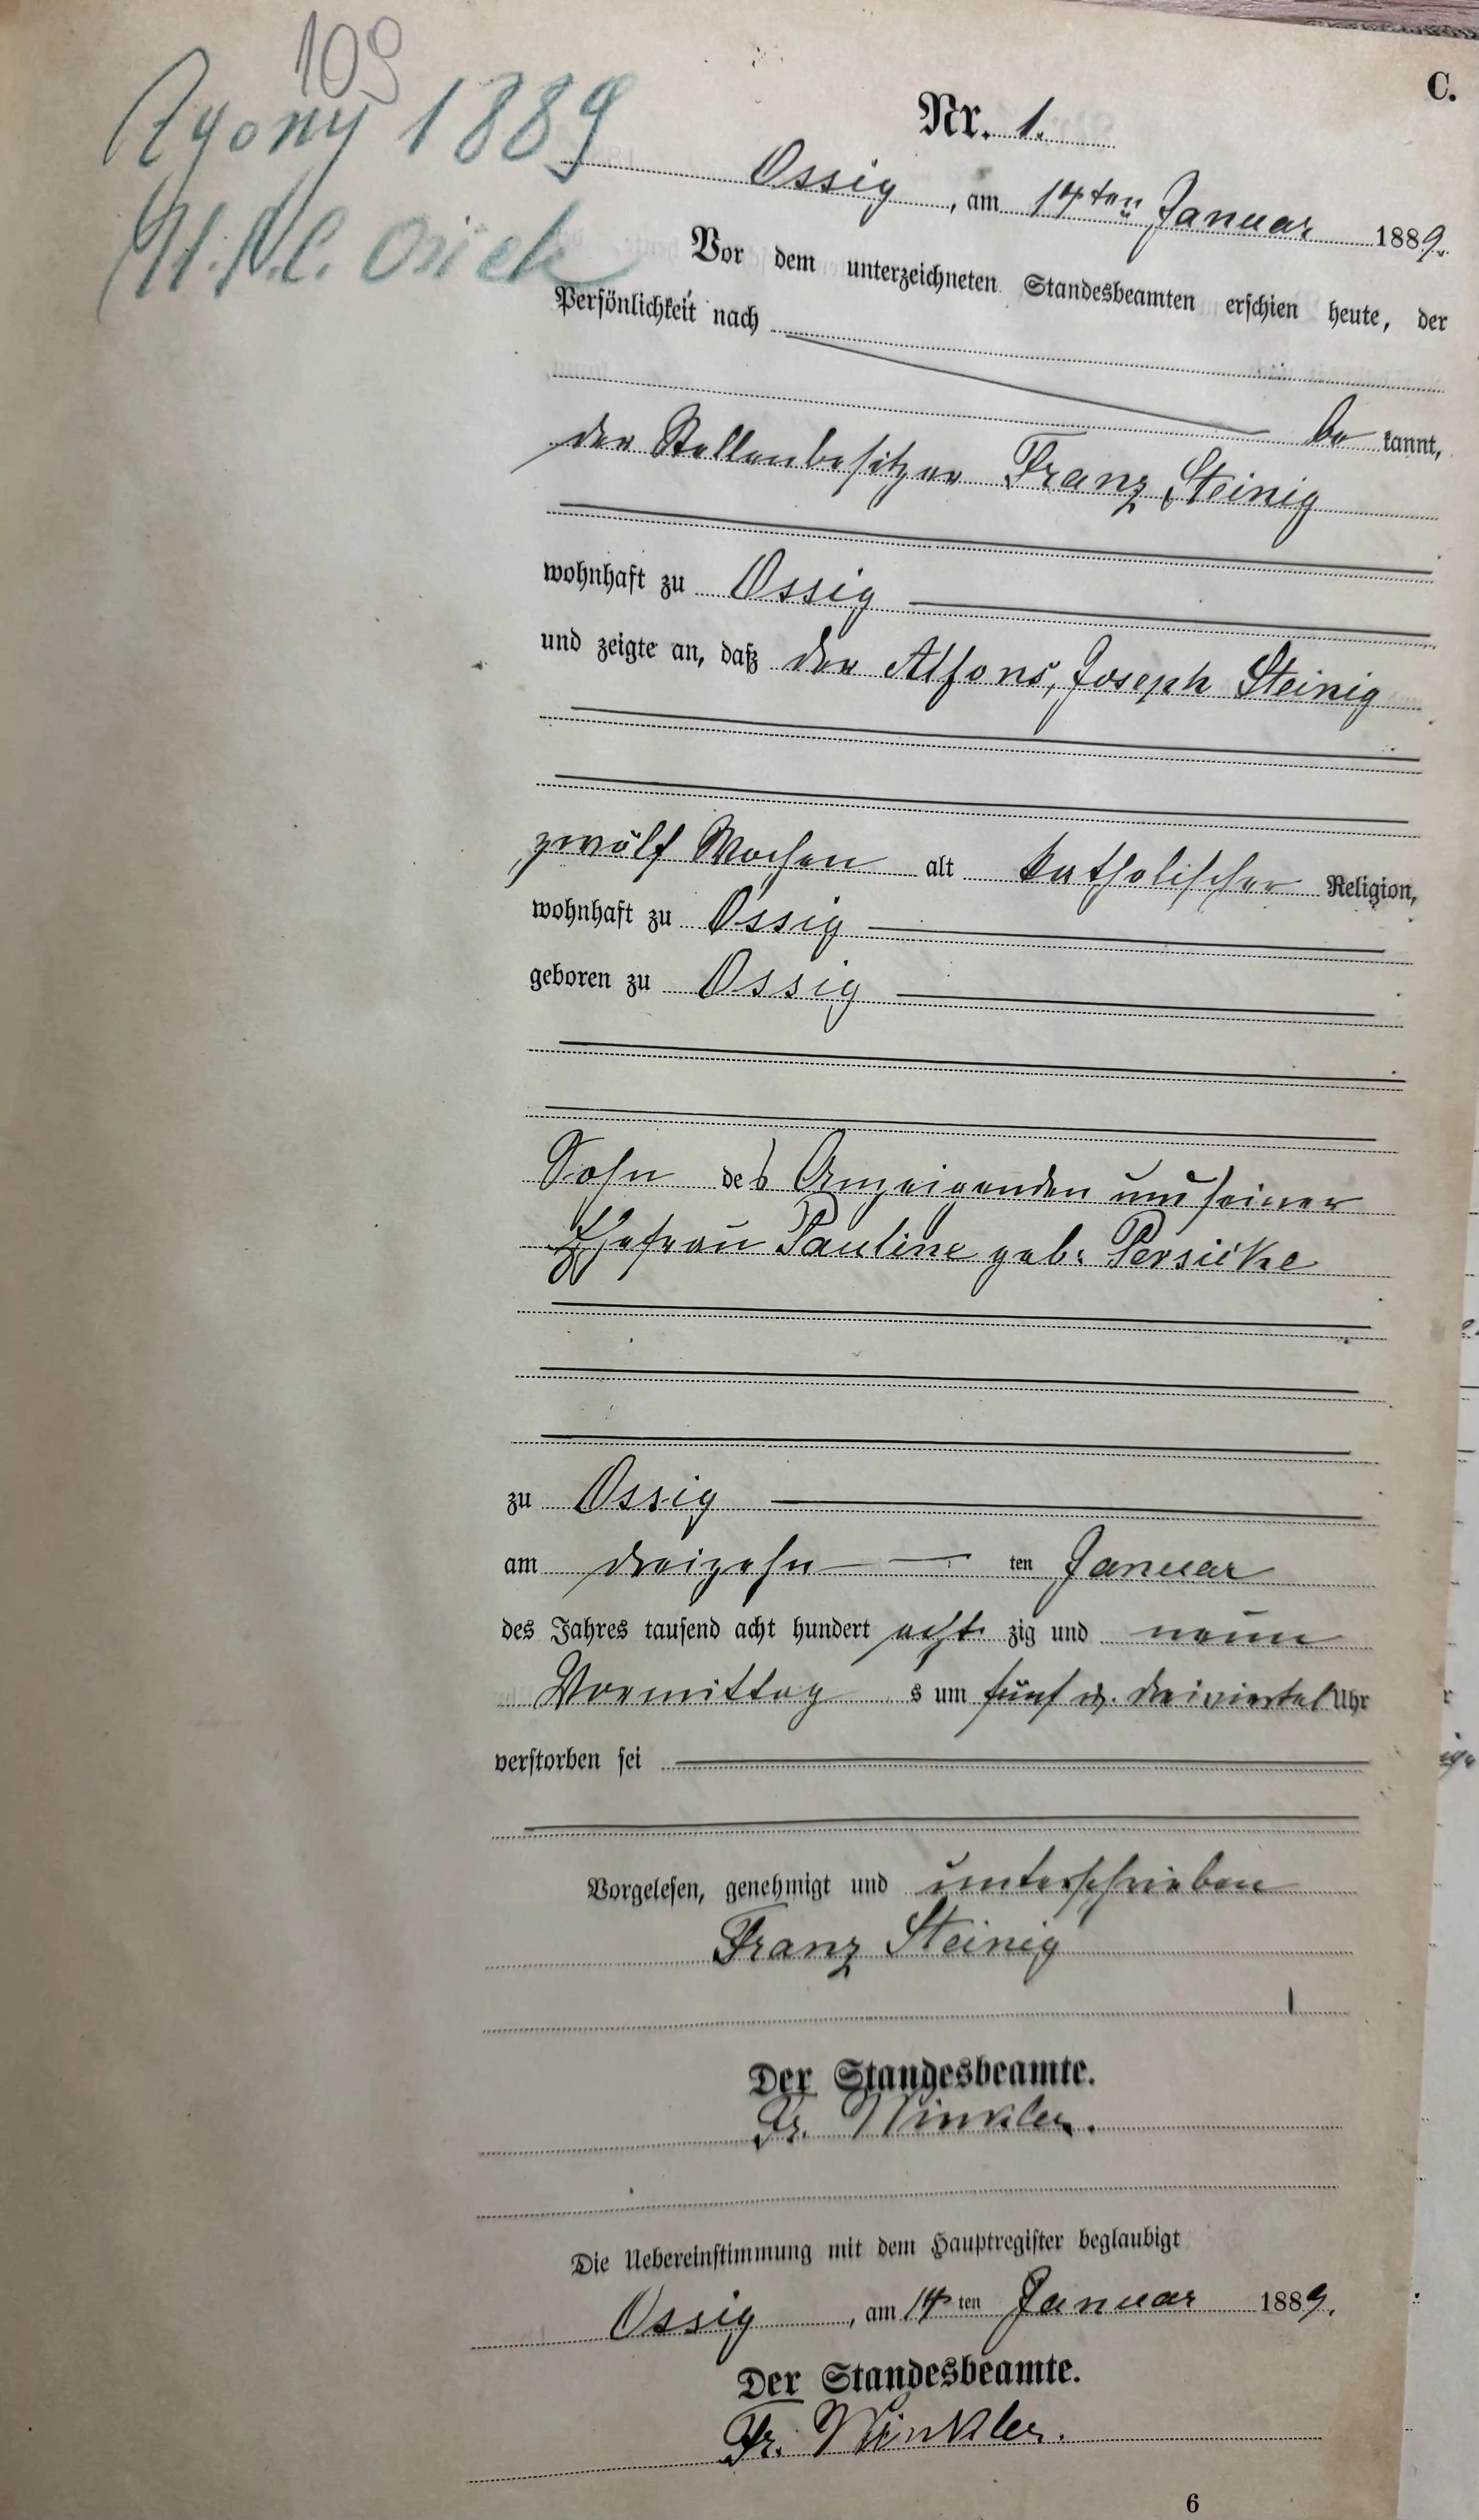 109
C.
Zgony 1889
U.S.C. Osiek
Nr. 1.
Ossig, am 14ten Januar 1889.
Vor dem unterzeichneten Standesbeamten erschien heute, der
Persönlichkeit nach
be kannt,
der Stellenbesitzer Franz Steinig
wohnhaft zu Ossig
und zeigte an, daß der Alfons, Joseph Steinig
zwölf Wochen alt katholischer Religion,
wohnhaft zu Ossig
geboren zu Ossig
Sohn des Anzeigenden und seiner
Ehefrau Pauline geb. Persicke
zu Ossig
am dreizehn ten Januar
des Jahres tausend acht hundert acht zig und neun
Vormittag s um fünf u. dreiviertel Uhr
verstorben sei
Vorgelesen, genehmigt und unterschrieben
Franz Steinig
Der Standesbeamte.
Fr. Winkler.
Die Uebereinstimmung mit dem Hauptregister beglaubigt
Ossig, am 14 ten Januar 1889.
Der Standesbeamte.
Fr. Winkler.
6